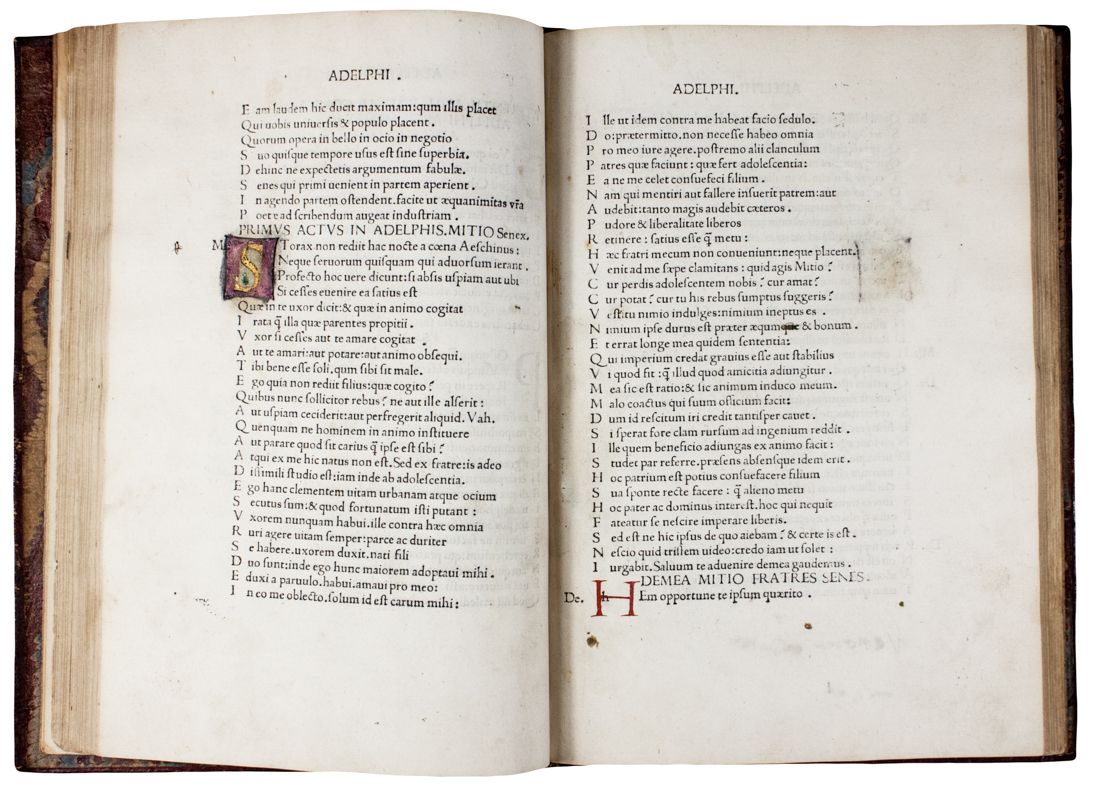 ADELPHI .
E am laudem hic ducit maximam:qum illis placet
Qui uobis uniuersis & populo placent.
Quorum opera in bello in ocio in negotio
S uo quisque tempore usus est sine superbia.
D ehinc ne expectetis argumentum fabulæ.
S enes qui primi uenient in partem aperient .
I n agendo partem ostendent.facite ut æquanimitas vr̃a
P oetead scribendum augeat industriam .
PRIMVS ACTVS IN ADELPHIS.MITIO Senex.
M S Torax.non rediit hac nocte a cœna Aeschinus:
Neque seruorum quisquam qui aduorsum ierant .
Profecto hoc uere dicunt:si absis uspiam aut ubi
Si cesses euenire ea satius est
Quæ in te uxor dicit:& quæ in animo cogitat
I rata q̃ illa quæ parentes propitii.
V xor si cesses aut te amare cogitat .
A ut te amari:aut potare:aut animo obsequi.
T ibi bene esse soli.qum sibi sit male.
E go quia non rediit filius:quæ cogito?
Quibus nunc sollicitor rebus? ne aut ille alserit :
A ut uspiam ceciderit:aut perfregerit aliquid. Vah.
Quenquam ne hominem in animo instituere
A ut parare quod sit carius q̃ ipse est sibi?
A tqui ex me hic natus non est.Sed ex fratre:is adeo
D issimili studio est:iam inde ab adolescentia.
E go hanc clementem uitam urbanam atque ocium
S ecutus sum:& quod fortunatum isti putant :
V xorem nunquam habui.ille contra hæc omnia
R uri agere uitam semper:parce ac duriter
S e habere.uxorem duxit.nati fili
D uo sunt:inde ego hunc maiorem adoptaui mihi .
E duxi a paruulo.habui.amaui pro meo:
I n eo me oblecto.solum id est carum mihi:
ADELPHI.
I lle ut idem contra me habeat facio sedulo.
D o:prætermitto.non necesse habeo omnia
P ro meo iure agere.postremo alii clanculum
P atres quæ faciunt : quæ fert adolescentia:
E a ne me celet consuefeci filium .
N am qui mentiri aut fallere insuerit patrem:aut
A udebit:tanto magis audebit cæteros .
P udore & liberalitate liberos
R etinere : satius esse q̃ metu :
H æc fratri mecum non conueniunt:neque placent.
V enit ad me sæpe clamitans : quid agis Mitio?
C ur perdis adolescentem nobis? cur amat?
C ur potat? cur tu his rebus sumptus suggeris?
V estitu nimio indulges:nimium ineptus es .
N imium ipse durus est præter æqumque & bonum .
E t errat longe mea quidem sententia:
Q ui imperium credat grauius esse aut stabilius
V i quod fit :q̃ illud quod amicitia adiungitur .
M ea sic est ratio:& sic animum induco meum.
M alo coactus qui suum officium facit:
D um id rescitum iri credit tantisper cauet .
S i sperat fore clam rursum ad ingenium reddit .
I lle quem beneficio adiungas ex animo facit :
S tudet par referre.præsens absensque idem erit .
H oc patrium est potius consuefacere filium
S ua sponte recte facere : q̃ alieno metu
H oc pater ac dominus interest.hoc qui nequit
F ateatur se nescire imperare liberis.
S ed est ne hic ipsus de quo aiebam? & certe is est .
N escio quid tristem uideo:credo iam ut solet :
I urgabit.Saluum te aduenire demea gaudemus .
DEMEA MITIO FRATRES SENES.
De. H Em opportune te ipsum quærito .